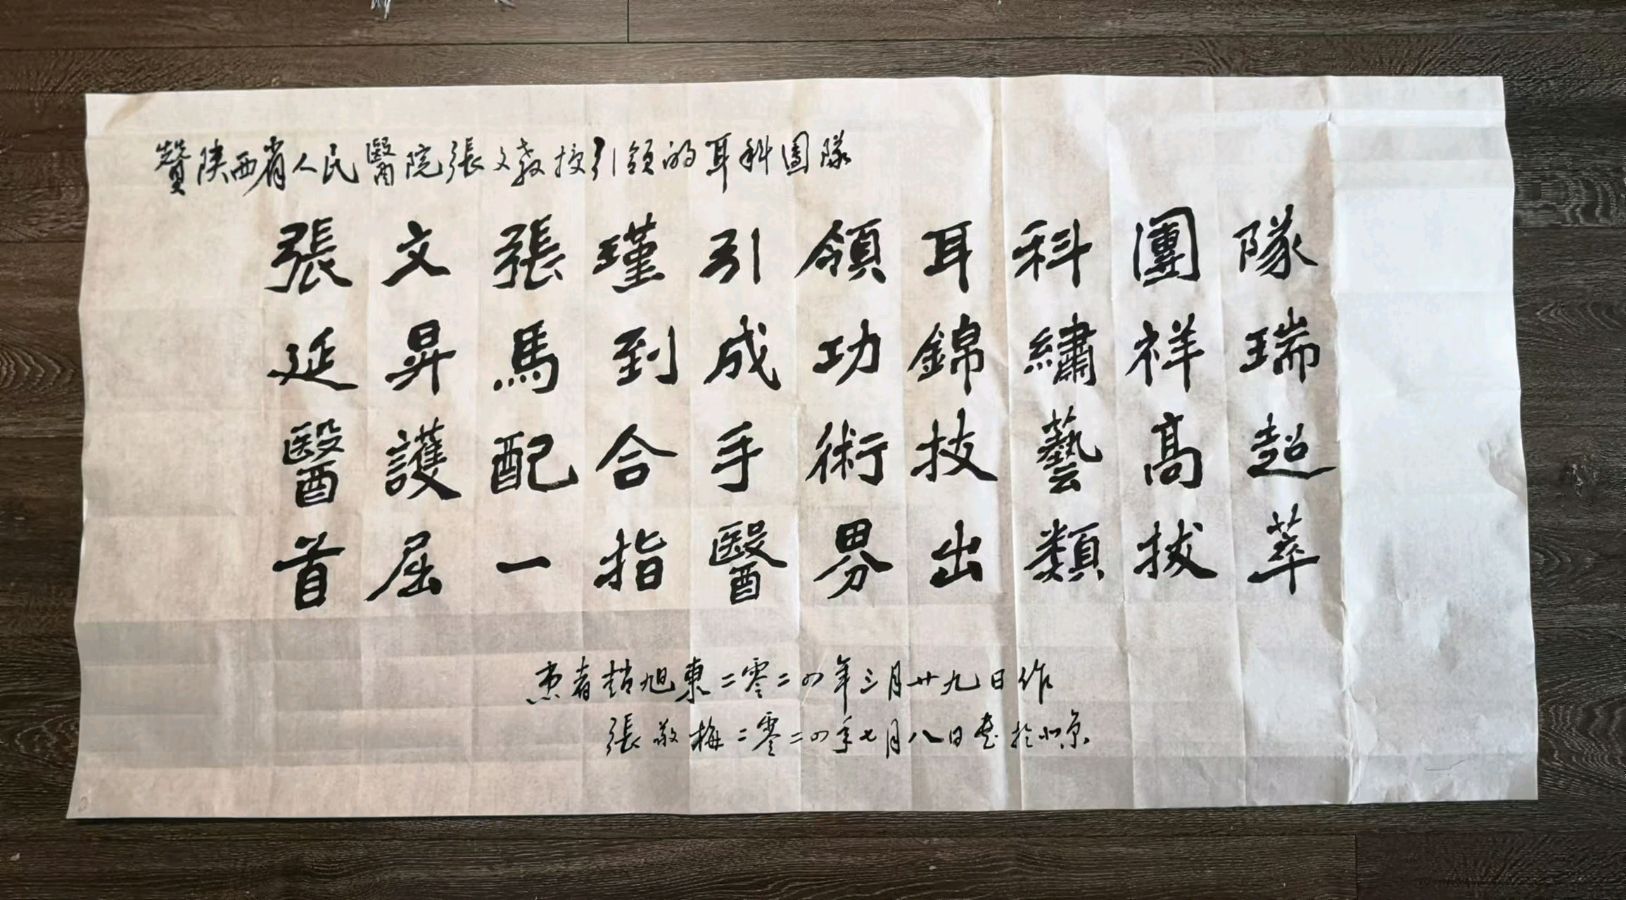 贊陕西省人民醫院張文教授引領的耳科團隊
張文張瑾引領耳科團隊
延昇馬到成功錦繡祥瑞
醫護配合手術技藝高超
首屈一指醫界出類拔萃
患者趙旭東二零二四年三月廿九日作
張敬梅二零二四年七月八日書於北京